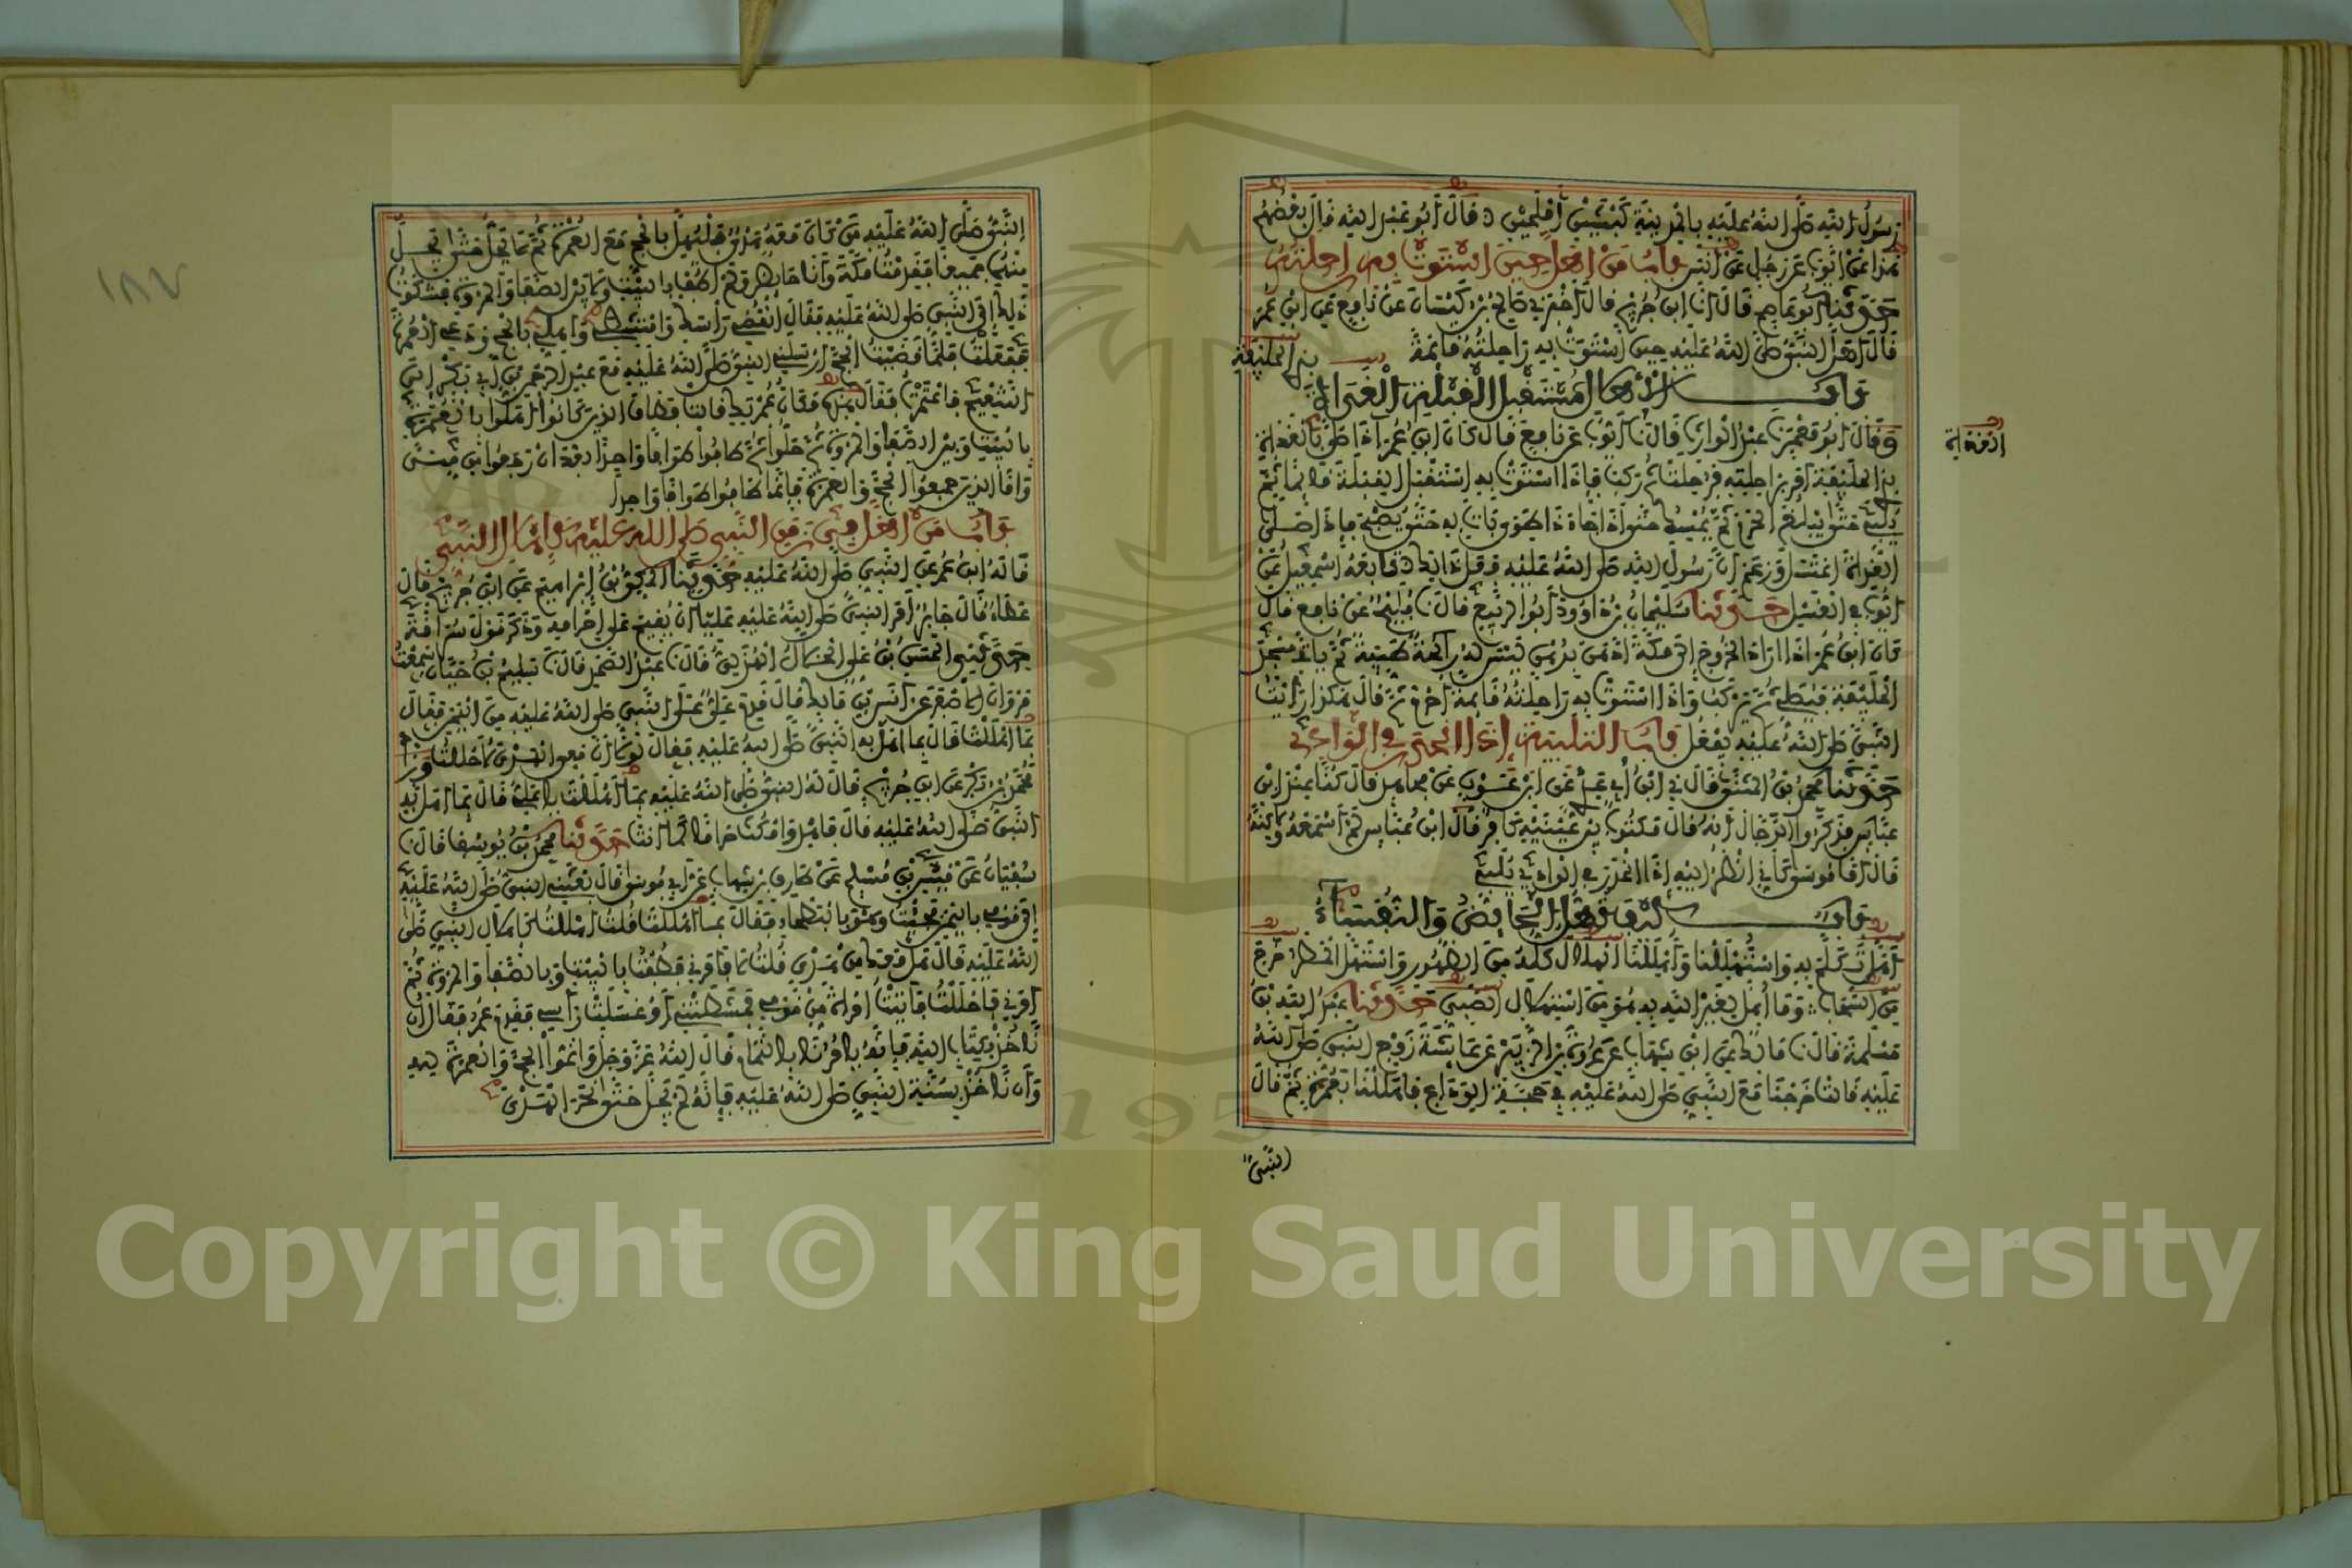 رسول الله صلى الله عليه بالمدينة كبشين أملحين قال أبو عبد الله قال بعضهم
هذا عن أيوب عن رجل عن أنس باب من أهل حين استوت به راحلته
حدثنا أبو عاصم قال انا ابن جريج قال أخبرني صالح بن كيسان عن نافع عن ابن عمر
قال أهل النبي صلى الله عليه حين استوت به راحلته قائمة
بذي الحليفة
باب الاهلال مستقبل القبلة الغداة
وقال أبو معمر نا عبد الوارث قال نا أيوب عن نافع قال كان ابن عمر إذا صلى بالغداة
بذي الحليفة أمر براحلته فرحلت ثم ركب فإذا استوت به استقبل القبلة قائما ثم
يلبي حتى يبلغ الحرم ثم يمسك حتى إذا جاء ذا طوى بات به حتى يصبح فإذا صلى
الغداة اغتسل وزعم أن رسول الله صلى الله عليه فعل ذلك تابعه إسمعيل عن
أيوب في الغسل حدثنا سليمان بن داوود أبو الربيع قال نا فليح عن نافع قال
كان ابن عمر إذا أراد الخروج إلى مكة ادهن بدهن ليس له رائحة طيبة ثم يأتي مسجد
الحليفة فيصلي ثم يركب وإذا استوت به راحلته قائمة أحرم ثم قال هكذا رأيت
النبي صلى الله عليه يفعل باب التلبية إذا انحدر في الوادي
حدثنا محمد بن المثنى قال ني ابن أبي عدي عن ابن عون عن مجاهد قال كنا عند ابن
عباس فذكروا الدجال أنه قال مكتوب بين عينيه كافر فقال ابن عباس لم أسمعه ولكنه
قال أما موسى كأني انظر إليه إذا انحدر في الوادي يلبي
باب كيف تهل الحايض والنفساء
أهل تكلم به واستهللنا وأهللنا الهلال كله من الظهور واستهل المطر خرج
من السحاب وما أهل لغير الله به هو من استهلال الصبي حدثنا عبد الله بن
مسلمة قال نا مالك عن ابن شهاب عن عروة بن الزبير عن عائشة زوج النبي صلى الله
عليه قالت خرجنا مع النبي صلى الله عليه في حجة الوداع فأهللنا بعمرة ثم قال
النبي
النبي صلى الله عليه من كان معه هدي فليهل بالحج مع العمرة ثم لا يحل حتى يحل
منهما جميعا فقدمت مكة وأنا حائض ولم أطف بالبيت ولا بين الصفا والمروة فشكوت
ذلك إلى النبي صلى الله عليه فقال انقضي رأسك وامتشطي وأهلي بالحج ودعي العمرة
ففعلت فلما قضينا الحج أرسلني النبي صلى الله عليه مع عبد الرحمن بن أبي بكر إلى
التنعيم فاعتمرت فقال هذه مكان عمرتك قالت فطاف الذين كانوا أهلوا بالعمرة
بالبيت وبين الصفا والمروة ثم حلوا ثم طافوا طوافا واحدا بعد أن رجعوا من منى
وأما الذين جمعوا الحج والعمرة فإنما طافوا طوافا واحدا
باب من أهل في زمن النبي صلى الله عليه كإهلال النبي
قاله ابن عمر عن النبي صلى الله عليه حدثنا المكي بن إبراهيم عن ابن جريج قال
عطاء قال جابر أمر النبي صلى الله عليه عليا أن يقيم على إحرامه وذكر قول سراقة
حدثني الحسن بن علي الخلال الهذلي قال نا عبد الصمد قال نا سليم بن حيان سمعت
مروان الأصفر عن أنس بن مالك قال قدم علي على النبي صلى الله عليه من اليمن فقال
بما أهللت قال بما أهل به النبي صلى الله عليه فقال لولا أن معي الهدي لأحللت وزاد
محمد بن بكر عن ابن جريج قال له النبي صلى الله عليه بما أهللت يا علي قال بما أهل به
النبي صلى الله عليه قال فأهد وامكث حراما كما أنت حدثنا محمد بن يوسف قال نا
سفيان عن قيس بن مسلم عن طارق بن شهاب عن أبي موسى قال بعثني النبي صلى الله عليه
إلى قومي باليمن فجئت وهو بالبطحاء فقال بما أهللت قلت أهللت كإهلال النبي صلى
الله عليه قال هل معك من هدي قلت لا فأمرني فطفت بالبيت وبالصفا والمروة ثم
أمرني فأحللت فأتيت امرأة من قومي فمشطتني أو غسلت رأسي فقدم عمر فقال إن
نأخذ بكتاب الله فإنه يأمرنا بالتمام قال الله عز وجل وأتموا الحج والعمرة لله
وأن نأخذ بسنة النبي صلى الله عليه فإنه لم يحل حتى نحر الهدي
١٨٧
Copyright © King Saud University
1957